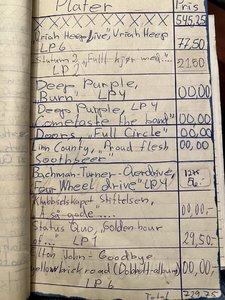 Plater Pris
XXXXXXXXXXXX 545,25
"Uriah Heep Live", Uriah Heep
LP 6 77,50
Statuz 2, "Full kjør med..."
LP 2 21,50
Deep Purple,
"Burn" LP 4 00,00
Deep Purple, LP 4
Come taste the band" 00,00
Doors, "Full Circle" 00,00
Lim County, "Proud flesh 00,00
Soothseer"
Bachman-Turner-Overdrive,
Four Wheel drive" LP 4
Klubbselskapet Stiftelsen,
"Et så gode..... 00,00,-
Status Quo, "Golden hour
of..." LP 1 29,50,-
Elton John - Goodbye
yellow brick road (Dobbeltalbum) 00,00,-
LP 6